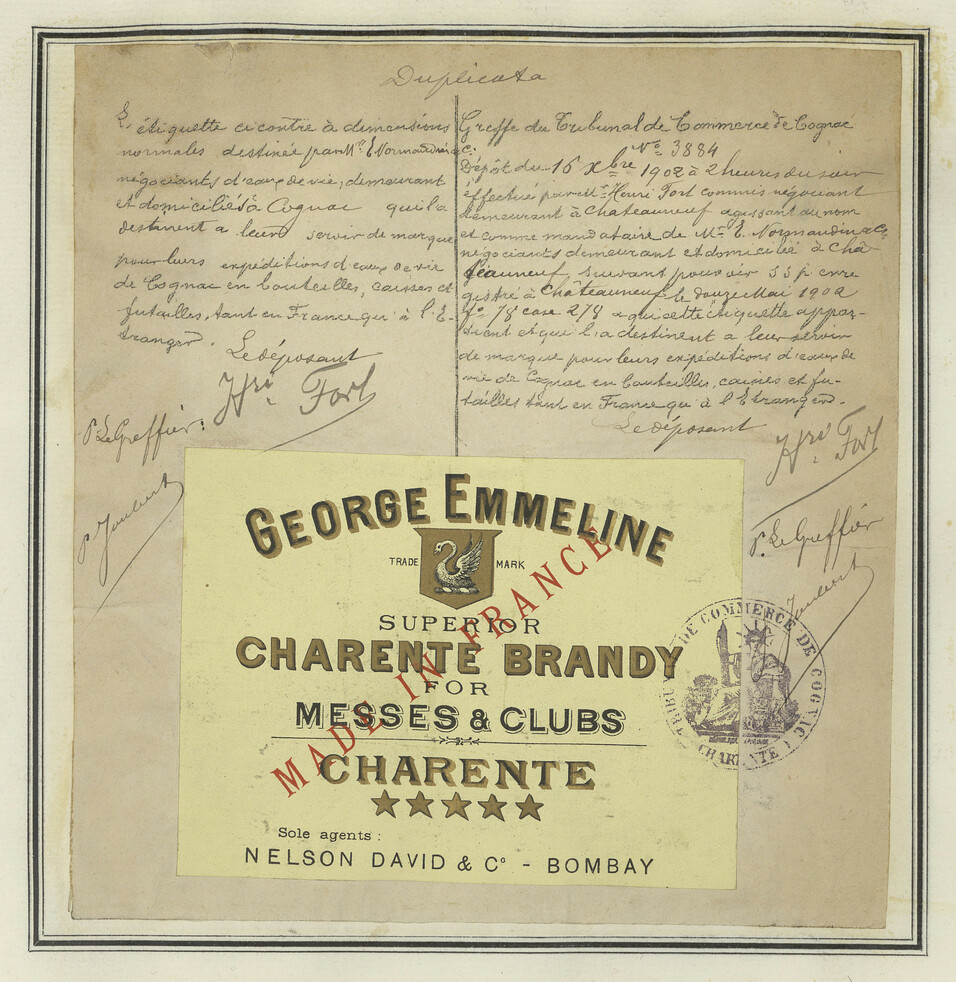 Duplicata
L'étiquette ci contre à dimensions
normales destinée par Mrs E. Normandin & Cie
négociants d'eaux de vie, demeurant
et domiciliés à Cognac qui la
destinent a leur servir de marque
pour leurs expéditions d'eaux de vie
de Cognac en bouteilles, caisses et
futailles, tant en France qu'à l'E-
tranger.
Le déposant
Hri Fort
P. Le Greffier:
P. Joubert
Greffe du Tribunal de Commerce de Cognac
No 3884
Dépôt du 16 Xbre 1902 à 2 heures du soir
effectué par Mr Henri Fort commis négociant
demeurant à Chateauneuf agissant au nom
et comme mandataire de Mrs E. Normandin & Co
négociants demeurant et domicilié à Châ
teauneuf, suivant pouvoir s s p enre
gistré à Châteauneuf le douze Mai 1902
fo 78 case 278 a qui cette étiquette appar-
tient et qui l'a destinent a leur servir
de marque pour leurs expéditions d'eaux de
vie de Cognac en bouteilles, caisses et fu-
tailles tant en France qu'à l'Etranger.
Le déposant
Hri Fort
P. Le Greffier
Joubert
GEORGE EMMELINE
TRADE MARK
SUPERIOR
CHARENTE BRANDY
FOR
MESSES & CLUBS
CHARENTE
Sole agents:
NELSON DAVID & Co - BOMBAY
MADE IN FRANCE
TRIBUNAL DE COMMERCE DE COGNAC
CHARENTE